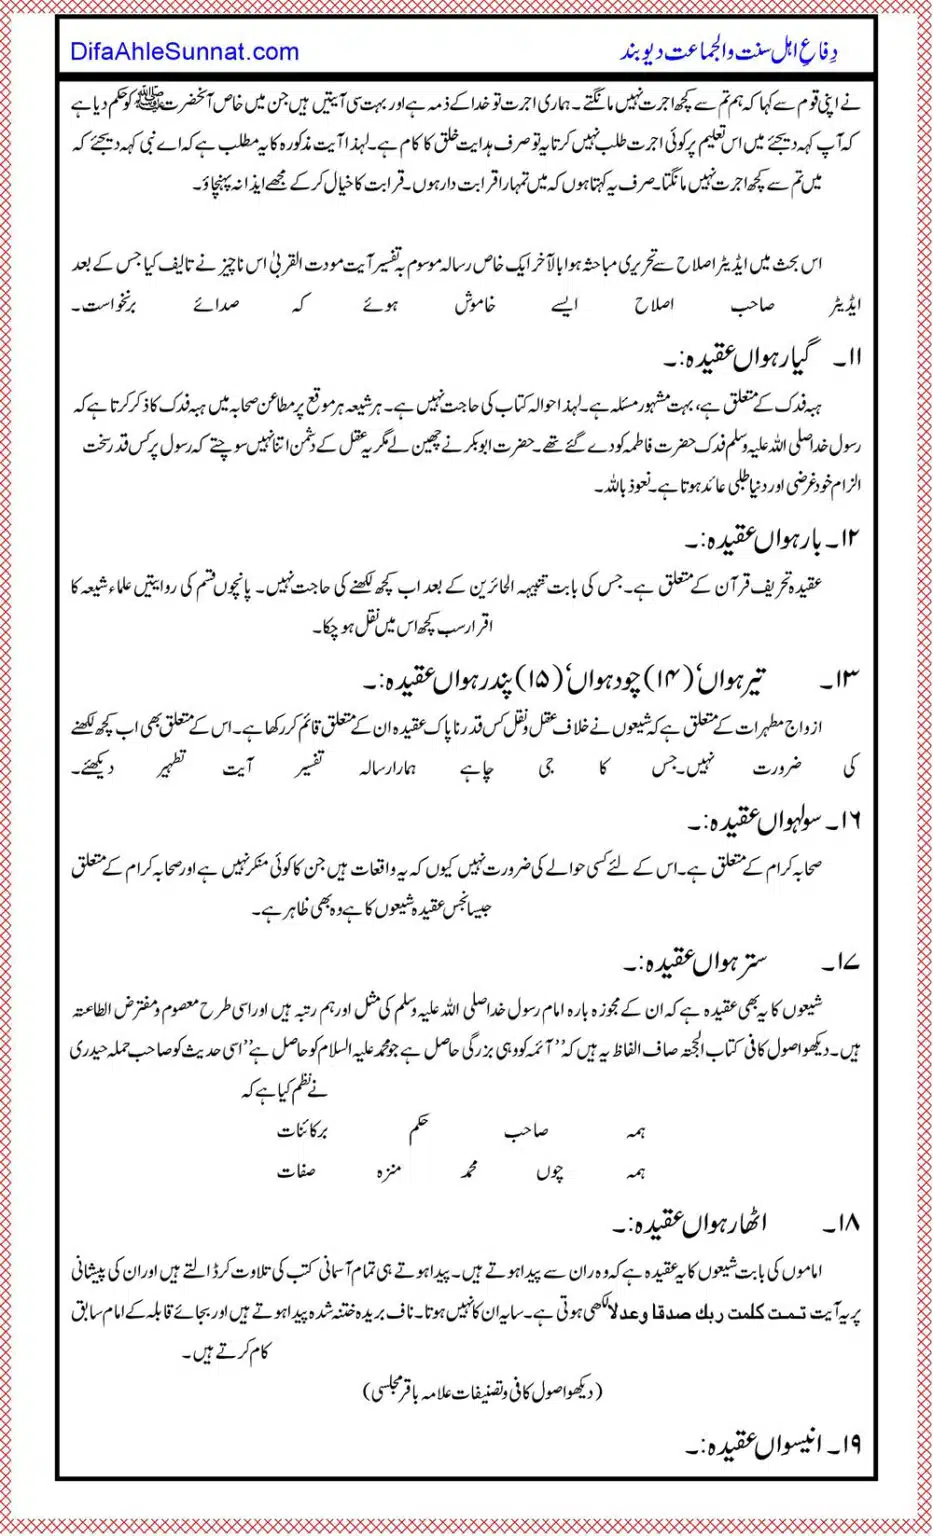 DifaAhleSunnat.com دِفاعِ اہل سنت والجماعت دیوبند
نے اپنی قوم سے کہا کہ ہم تم سے کچھ اجرت نہیں مانگتے۔ ہماری اجرت تو خدا کے ذمہ ہے اور بہت سی آیتیں ہیں جن میں خاص آنحضرت ﷺ کو حکم دیا ہے
کہ آپ کہہ دیجئے میں اس تعلیم پر کوئی اجرت طلب نہیں کرتا یہ تو صرف ہدایت خلق کا کام ہے۔ لہذا آیت مذکورہ کا یہ مطلب ہے کہ اے نبی کہہ دیجئے کہ
میں تم سے کچھ اجرت نہیں مانگتا۔ صرف یہ کہتا ہوں کہ میں تمہارا قرابت دار ہوں۔ قرابت کا خیال کر کے مجھے ایذا نہ پہنچاؤ۔
اس بحث میں ایڈیٹر اصلاح سے تحریری مباحثہ ہوا بالآخر ایک خاص رسالہ موسوم بہ تفسیر آیت مودت القربیٰ اس ناچیز نے تالیف کیا جس کے بعد
ایڈیٹر صاحب اصلاح ایسے خاموش ہوئے کہ صدائے برنخواست۔
۱۱۔ گیارہواں عقیدہ:۔
ہبہ فدک کے متعلق ہے، بہت مشہور مسئلہ ہے۔ لہذا حوالہ کتاب کی حاجت نہیں ہے۔ ہر شیعہ ہر موقع پر مطاعن صحابہ میں ہبہ فدک کا ذکر کرتا ہے کہ
رسول خدا صلی اللہ علیہ وسلم فدک حضرت فاطمہ کو دے گئے تھے۔ حضرت ابوبکر نے چھین لے مگر یہ عقل کے دشمن اتنا نہیں سوچتے کہ رسول پر کس قدر سخت
الزام خود غرضی اور دنیا طلبی عائد ہوتا ہے۔ نعوذ باللہ۔
۱۲۔ بارہواں عقیدہ:۔
عقیدہ تحریف قرآن کے متعلق ہے۔ جس کی بابت تنبیہہ الحائرین کے بعد اب کچھ لکھنے کی حاجت نہیں۔ پانچوں قسم کی روایتیں علماء شیعہ کا
اقرار سب کچھ اس میں نقل ہو چکا۔
۱۳۔ تیرہواں‘ (۱۴) چودہواں‘ (۱۵) پندرہواں عقیدہ:۔
ازواج مطہرات کے متعلق ہے کہ شیعوں نے خلاف عقل و نقل کس قدر ناپاک عقیدہ ان کے متعلق قائم کر رکھا ہے۔ اس کے متعلق بھی اب کچھ لکھنے
کی ضرورت نہیں۔ جس کا جی چاہے ہمارا رسالہ تفسیر آیت تطہیر دیکھئے۔
۱۶۔ سولہواں عقیدہ:۔
صحابہ کرام کے متعلق ہے۔ اس کے لئے کسی حوالے کی ضرورت نہیں کیوں کہ یہ واقعات ہیں جن کا کوئی منکر نہیں ہے اور صحابہ کرام کے متعلق
جیسا نجس عقیدہ شیعوں کا ہے وہ بھی ظاہر ہے۔
۱۷۔ سترہواں عقیدہ:۔
شیعوں کا یہ بھی عقیدہ ہے کہ ان کے مجوزہ بارہ امام رسول خدا صلی اللہ علیہ وسلم کی مثل اور ہم رتبہ ہیں اور اسی طرح معصوم و مفترض الطاعتہ
ہیں۔ دیکھو اصول کافی کتاب الحجتہ صاف الفاظ یہ ہیں کہ ’’آئمہ کو وہی بزرگی حاصل ہے جو محمد علیہ السلام کو حاصل ہے‘‘ اسی حدیث کو صاحب حملہ حیدری
نے نظم کیا ہے کہ
ہمہ صاحب حکم برکائنات
ہمہ چوں محمد منزہ صفات
۱۸۔ اٹھارہواں عقیدہ:۔
اماموں کی بابت شیعوں کا یہ عقیدہ ہے کہ وہ ران سے پیدا ہوتے ہیں۔ پیدا ہوتے ہی تمام آسمانی کتب کی تلاوت کر ڈالتے ہیں اور ان کی پیشانی
پر یہ آیت تمت کلمت ربك صدقا وعدلا لکھی ہوتی ہے۔ سایہ ان کا نہیں ہوتا۔ ناف بریدہ ختنہ شدہ پیدا ہوتے ہیں اور بجائے قابلہ کے امام سابق
کام کرتے ہیں۔
(دیکھو اصول کافی و تصنیفات علامہ باقر مجلسی)
۱۹۔ انیسواں عقیدہ:۔